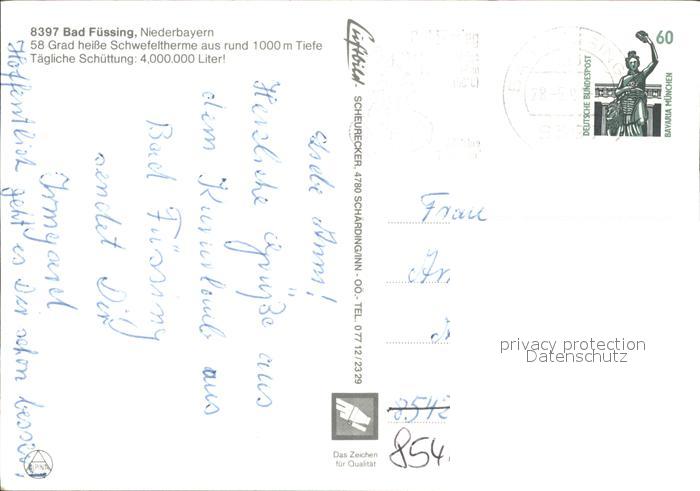 8397 Bad Füssing, Niederbayern
58 Grad heiße Schwefeltherme aus rund 1000 m Tiefe
Tägliche Schüttung: 4,000.000 Liter!
Liebe Anni!
Herzliche Grüße aus
dem Kururlaub aus
Bad Füssing
sendet Dir
Irmgard
Hoffentlich geht es Dir schon besser!
Luftbild. SCHEURECKER, 4780 SCHÄRDING/INN - OÖ,- TEL. 0 77 12 / 23 29
60
DEUTSCHE BUNDESPOST
BAVARIA MÜNCHEN
Frau
8542
854.
Das Zeichen
für Qualität
privacy protection
Datenschutz